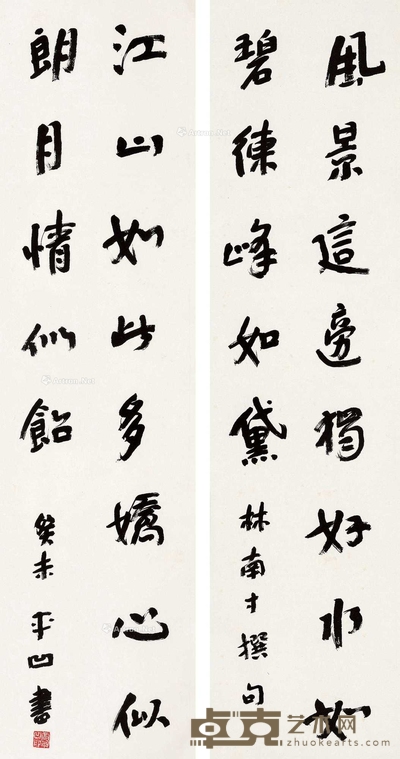 風景這邊獨好水如
碧練峰如黛 林南才撰句
江山如此多嬌心似
朗月情似飴 癸未 平凹書
卓克艺术网
www.zhuokearts.com